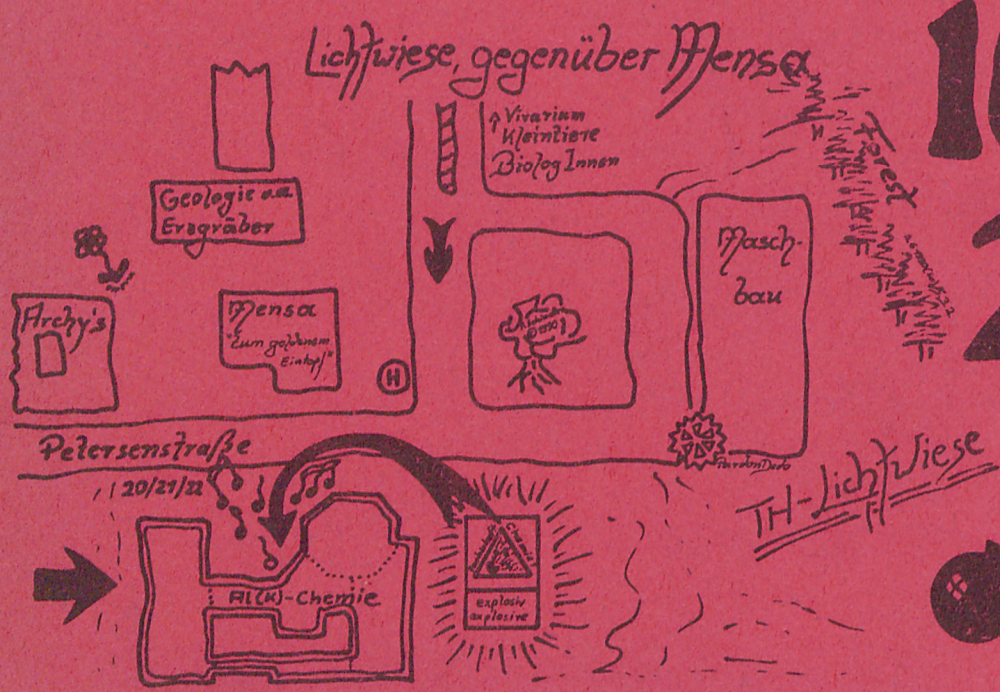 Lichtwiese, gegenüber Mensa
↑ Vivarium
Kleintiere
BiologInnen
Forest
Geologie u.a.
Erzgräber
Masch-
bau
Archy's
Mensa
"Zum goldenen
Eintopf"
H
Petersenstraße
20/21/22
TH-Lichtwiese
Al(K)-Chemie
explosiv
explosive